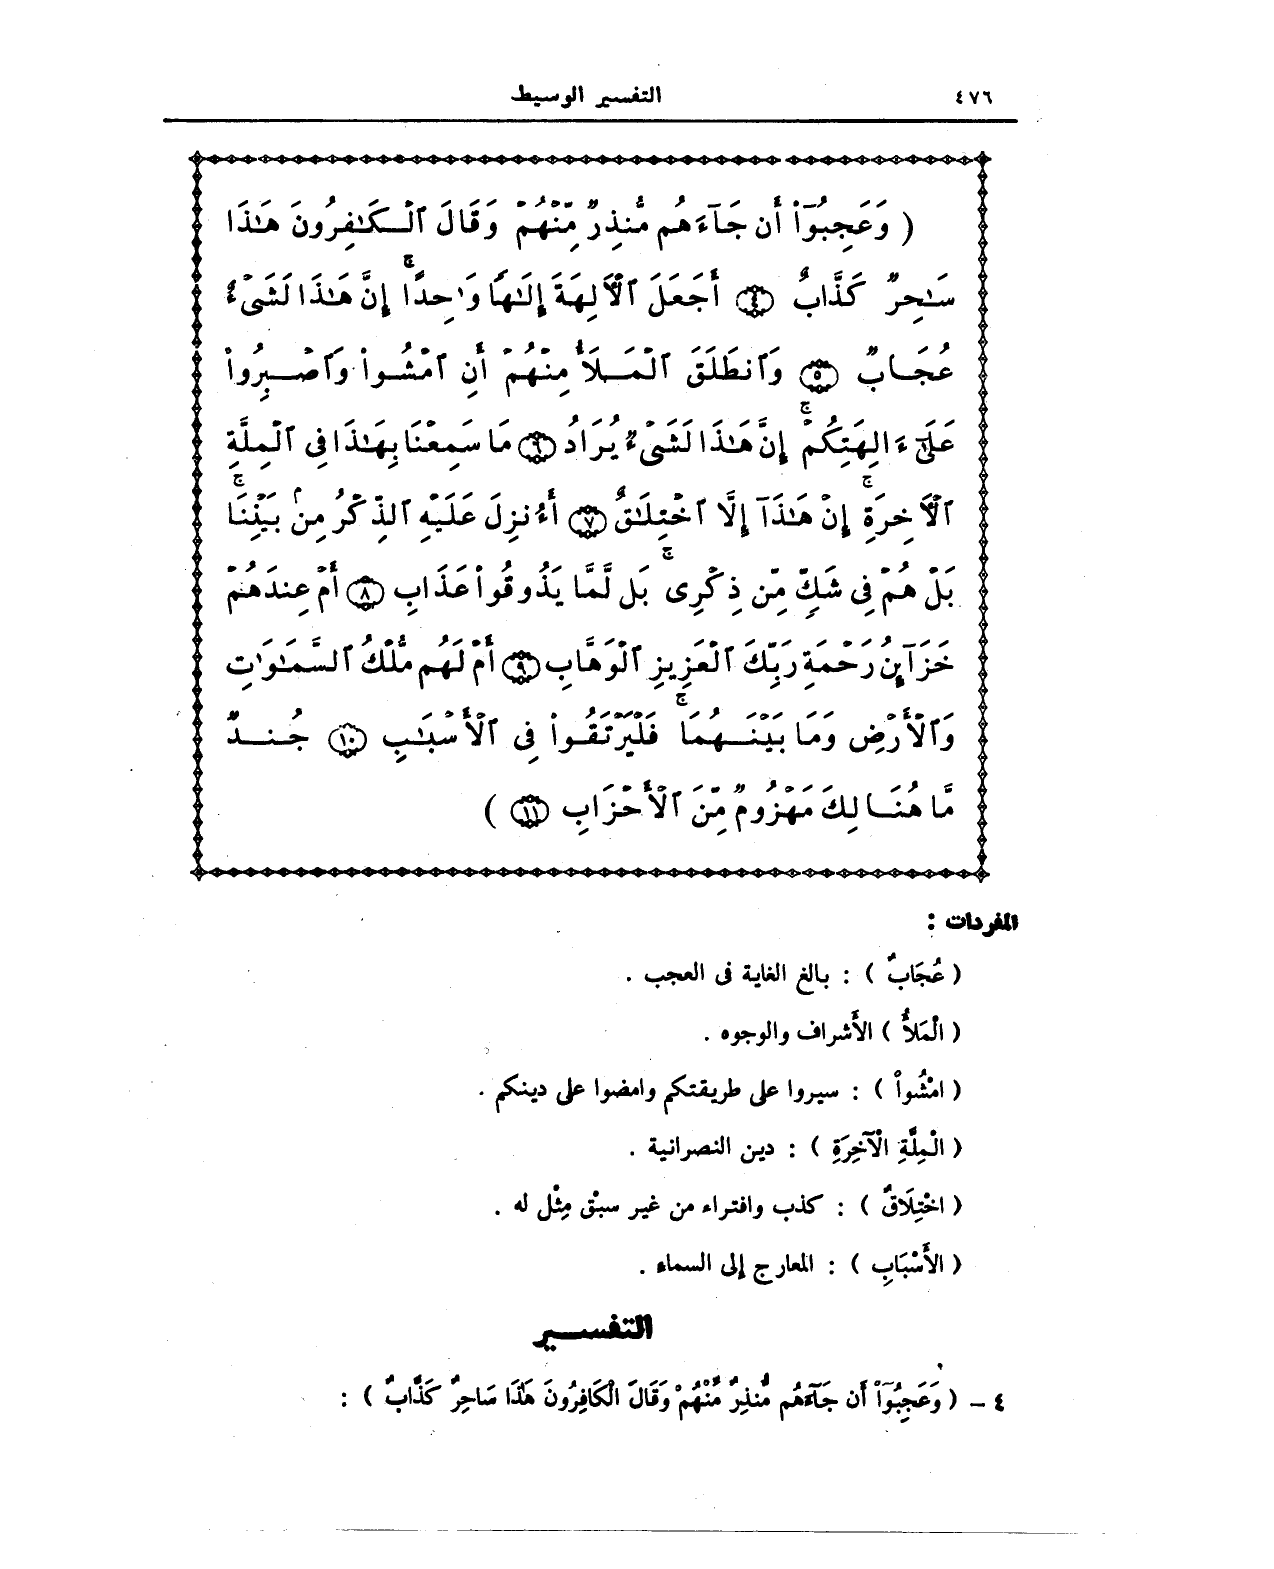 ٤٧٦
التفسير الوسيط
( وَعَجِبُوٓا۟ أَن جَآءَهُم مُّنذِرٌ مِّنْهُمْ وَقَالَ ٱلْكَـٰفِرُونَ هَـٰذَا
سَـٰحِرٌ كَذَّابٌ ٤ أَجَعَلَ ٱلْأَلِهَةَ إِلَـٰهًا وَٰحِدًا ۚ إِنَّ هَـٰذَا لَشَىْءٌ
عُجَابٌ ٥ وَٱنطَلَقَ ٱلْمَلَأُ مِنْهُمْ أَنِ ٱمْشُوا۟ وَٱصْبِرُوا۟
عَلَىٰٓ ءَالِهَتِكُمْ ۚ إِنَّ هَـٰذَا لَشَىْءٌ يُرَادُ ٦ مَا سَمِعْنَا بِهَـٰذَا فِى ٱلْمِلَّةِ
ٱلْأَخِرَةِ ۚ إِنْ هَـٰذَآ إِلَّا ٱخْتِلَـٰقٌ ٧ أَءُنزِلَ عَلَيْهِ ٱلذِّكْرُ مِنۢ بَيْنِنَا ۚ
بَلْ هُمْ فِى شَكٍّ مِّن ذِكْرِى ۚ بَل لَّمَّا يَذُوقُوا۟ عَذَابِ ٨ أَمْ عِندَهُمْ
خَزَآئِنُ رَحْمَةِ رَبِّكَ ٱلْعَزِيزِ ٱلْوَهَّابِ ٩ أَمْ لَهُم مُّلْكُ ٱلسَّمَـٰوَٰتِ
وَٱلْأَرْضِ وَمَا بَيْنَـهُمَا ۚ فَلْيَرْتَقُوا۟ فِى ٱلْأَسْبَـٰبِ ١٠ جُندٌ
مَّا هُنَـالِكَ مَهْزُومٌ مِّنَ ٱلْأَحْزَابِ ١١ )
المفردات :
( عُجَابٌ ) : بالغ الغاية فى العجب .
( الْمَلَأُ ) الأَشراف والوجوه .
( امْشُوا۟ ) : سيروا على طريقتكم وامضوا على دينكم .
( الْمِلَّةِ الْآخِرَةِ ) : دين النصرانية .
( اخْتِلَاقٌ ) : كذب وافتراء من غير سبْق مِثْل له .
( الأَسْبَابِ ) : المعارج إلى السماء .
التفسـير
٤ - ( وَعَجِبُوٓا۟ أَن جَآءَهُم مُّنذِرٌ مِّنْهُمْ وَقَالَ الْكَافِرُونَ هَٰذَا سَاحِرٌ كَذَّابٌ ) :